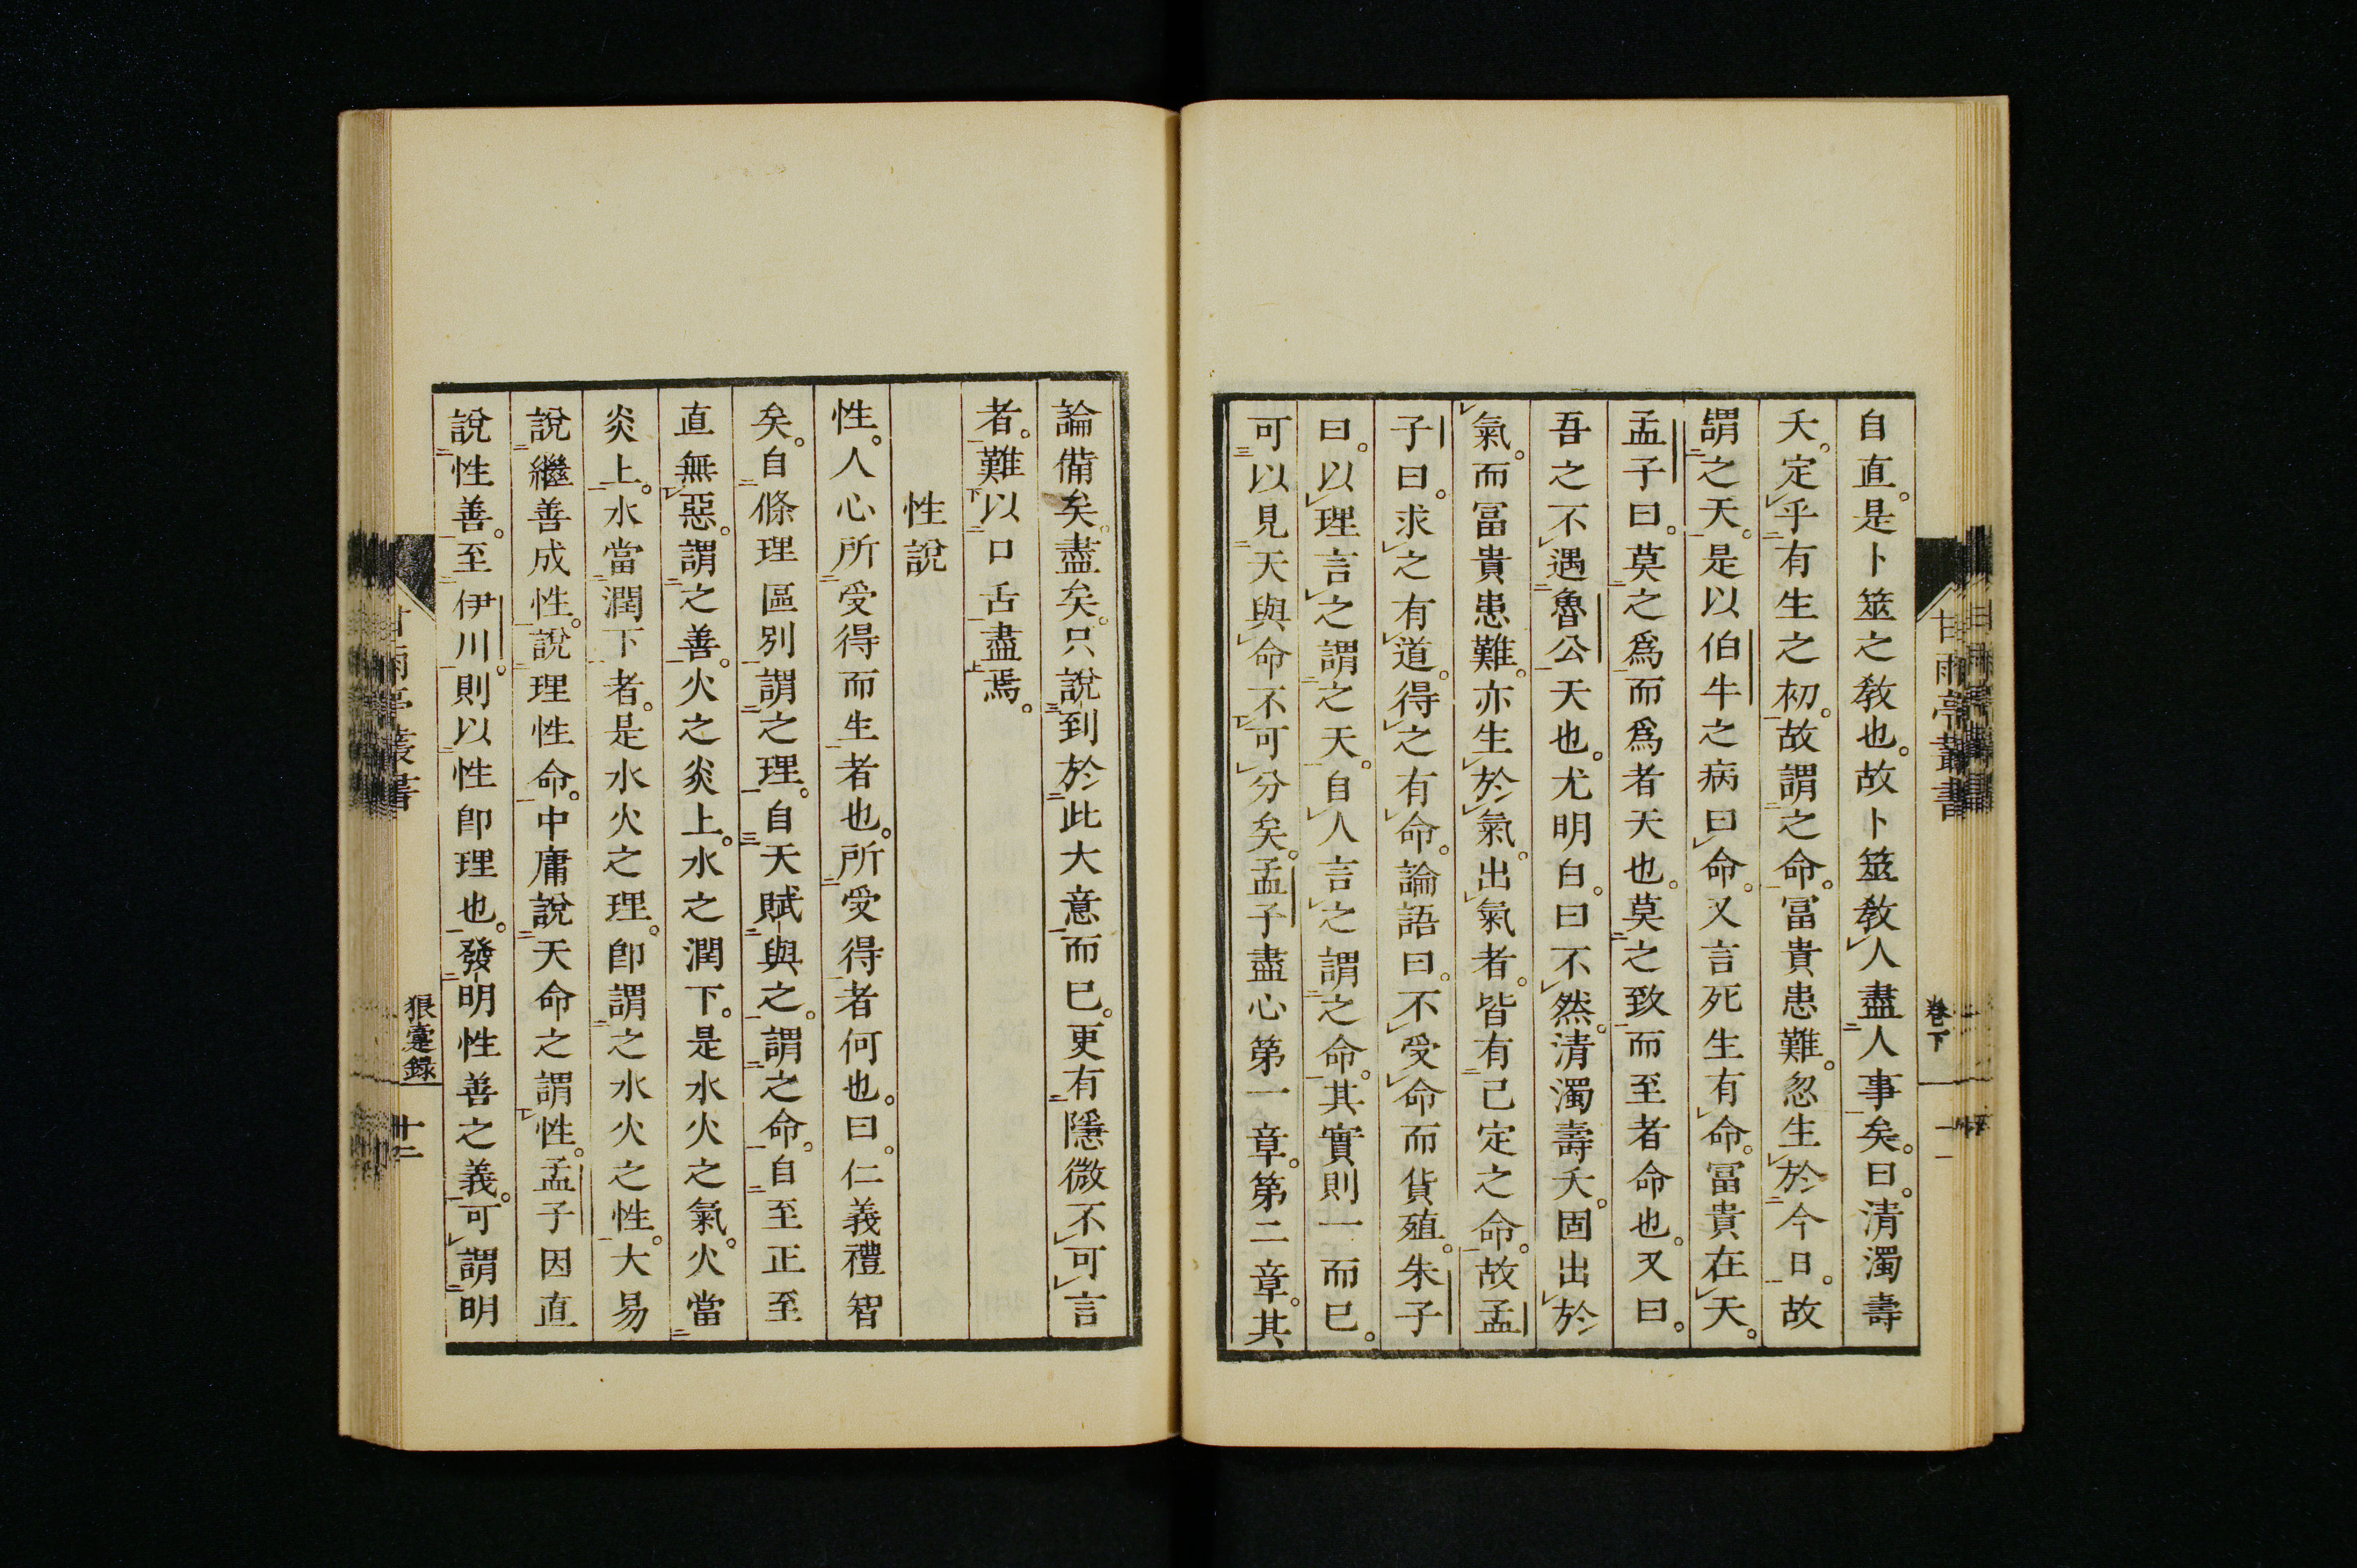 自直。是卜筮之敎也。故卜筮敎㆑人盡㆓人事㆒矣。曰。清濁壽
夭。定㆓乎有生之初㆒。故謂㆓之命㆒。冨貴患難。忽生㆓於今日㆒。故
謂㆓之天㆒。是以伯牛之病曰㆑命。又言死生有㆑命。冨貴在㆑天。
孟子曰。莫㆓之爲㆒而爲者天也。莫㆓之致㆒而至者命也。又曰。
吾之不㆑遇㆓魯公㆒天也。尤明白。曰不㆑然。清濁壽夭。固出㆑於
㆑氣。而冨貴患難。亦生㆑於㆑氣。出㆑氣者。皆有㆓已定之命㆒。故孟
子曰。求㆑之有㆑道。得㆑之有㆑命。論語曰。不㆑受㆑命而貨殖。朱子
曰。以㆑理言㆑之謂㆓之天㆒。自㆑人言㆑之謂㆓之命㆒。其實則一而已。
可㆔以見㆓天與㆑命不㆒㆑可㆑分矣。孟子盡心第一章。第二章。其
甘雨亭叢書
卷下
論備矣。盡矣。只說㆔到於㆓此大意㆒而已。更有㆓隱微不㆑可㆑言
者㆒。難㆘以㆓口舌㆒盡㆖焉。
性說
性。人心所㆓受得而生㆒者也。所㆓受得㆒者何也。曰。仁義禮智
矣。自㆓條理區別㆒謂㆓之理㆒。自㆔天賦㆓與之㆒。謂㆓之命㆒。自㆓至正至
直無㆒㆑惡。謂㆓之善㆒。火之炎上。水之潤下。是水火之氣。火當㆓
炎上㆒。水當㆓潤下㆒者。是水火之理。卽謂㆓之水火之性㆒。大易
說㆓繼善成性㆒。說㆓理性命㆒。中庸說㆓天命之謂㆒㆑性。孟子因直
說㆓性善㆒。至㆓伊川㆒。則以㆓性卽理也㆒。發㆓明性善之義㆒。可㆑謂㆓明
甘雨亭叢書
狼疐録
十二